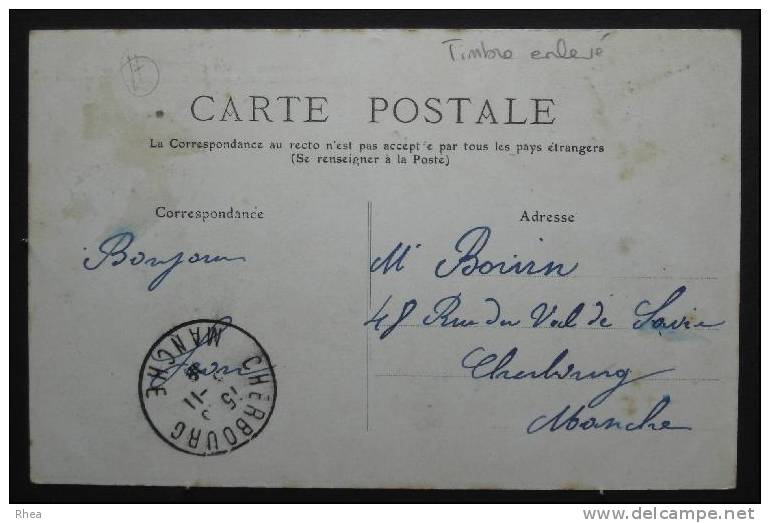 Timbre enlevé
CARTE POSTALE
La Correspondance au recto n'est pas acceptée par tous les pays étrangers
(Se renseigner à la Poste)
Correspondance
Adresse
Bonjour
Léon
Mr Boivin
48 Rue du Val de Saire
Cherbourg
Manche
CHERBOURG
MANCHE
15
-11
Rhea
delcampe.net